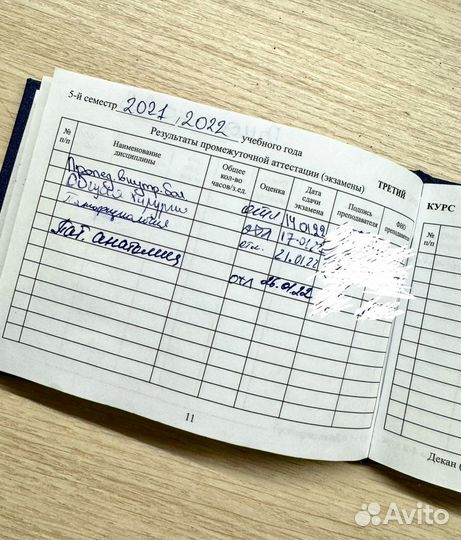 5-й семестр 2021, 2022 учебного года
Результаты промежуточной аттестации (экзамены) ТРЕТИЙ
№ п/п
Наименование дисциплины
Общее кол-во часов/з.ед.
Оценка
Дата сдачи экзамена
Подпись преподавателя
ФИО преподав
Пропед. внутр. бол
Общая хирургия 17.01.22
отл. 21.01.22
Пат. анатомия
отл 26.01.22
11
КУРС
№ п/п
Декан
Avito